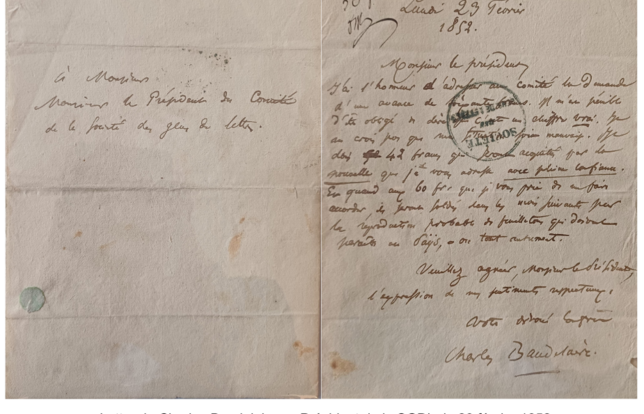 à Monsieur
Monsieur le Président du Comité
de la Société des gens de lettres.
Lundi 23 Février
1852.
Monsieur le président,
J'ai l'honneur d'adresser au comité la demande
d'une avance de soixante francs. Il m'est pénible
d'être obligé de un chiffre
crois pas que mauvais.
dois 42 francs qui acquittés par la
nouvelle que je vous adresse avec pleine confiance.
Et quant aux 60 fr. que je vous prie de me faire
accorder, ils seront soldés dans les mois suivants par
la reproduction probable de feuilletons qui doivent
paraître au Pays, ou tout autrement.
Veuillez agréer, Monsieur le Président,
l'expression de mes sentiments respectueux.
Votre dévoué confrère
Charles Baudelaire.
SOCIÉTÉ